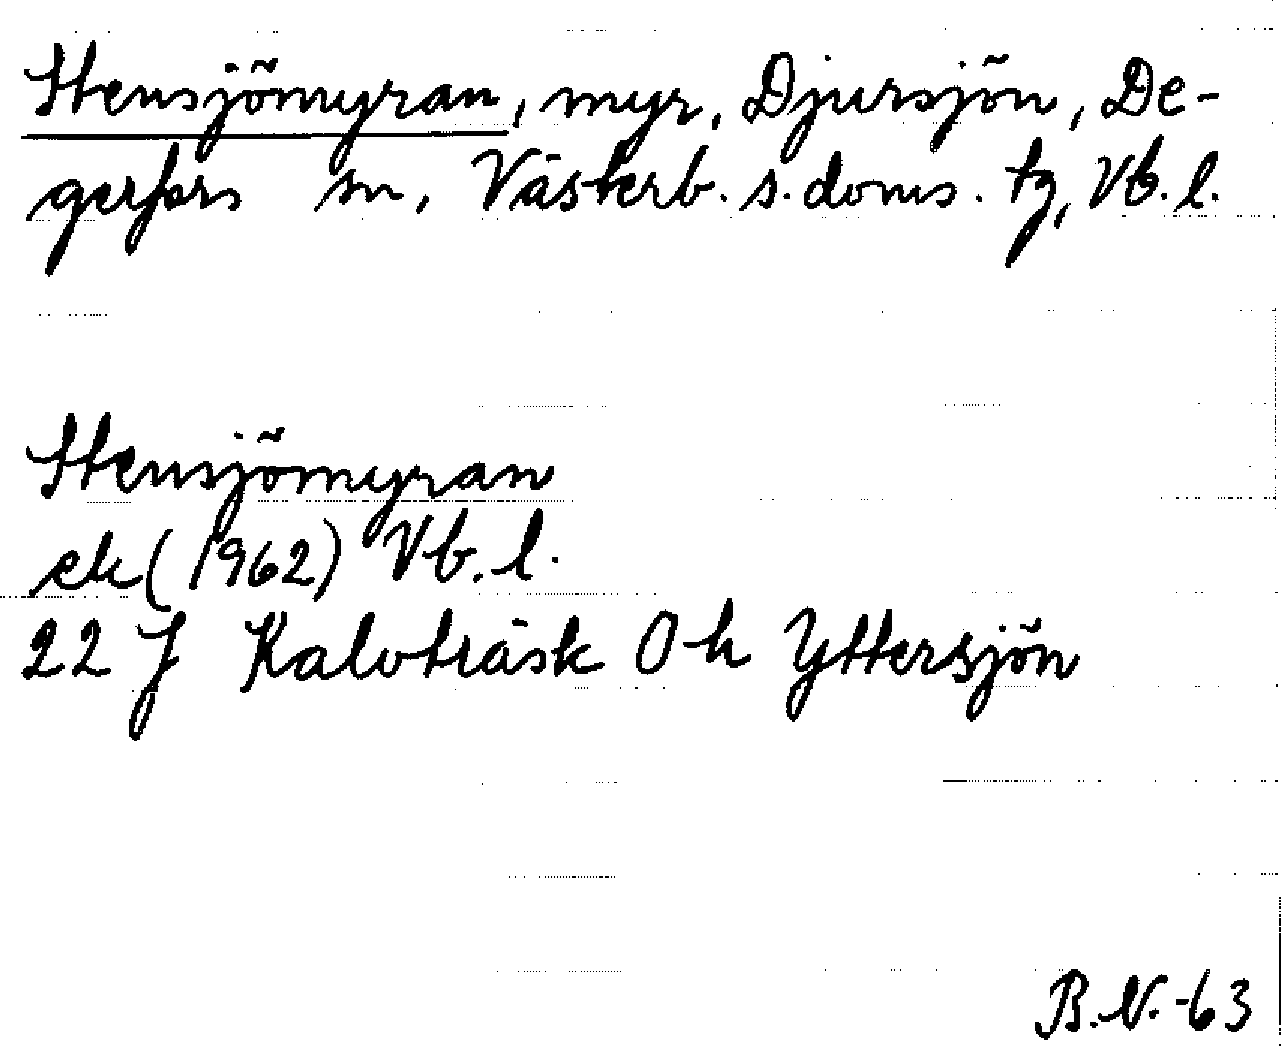 Stensjömyran, myr, Djursjön, De-
gerfors sn, Västerb. s. doms. tg, Vb. l.
Stensjömyran
ek (1962) Vb. l.
22 J Kalvträsk 0 h Yttersjön
B.N.-63